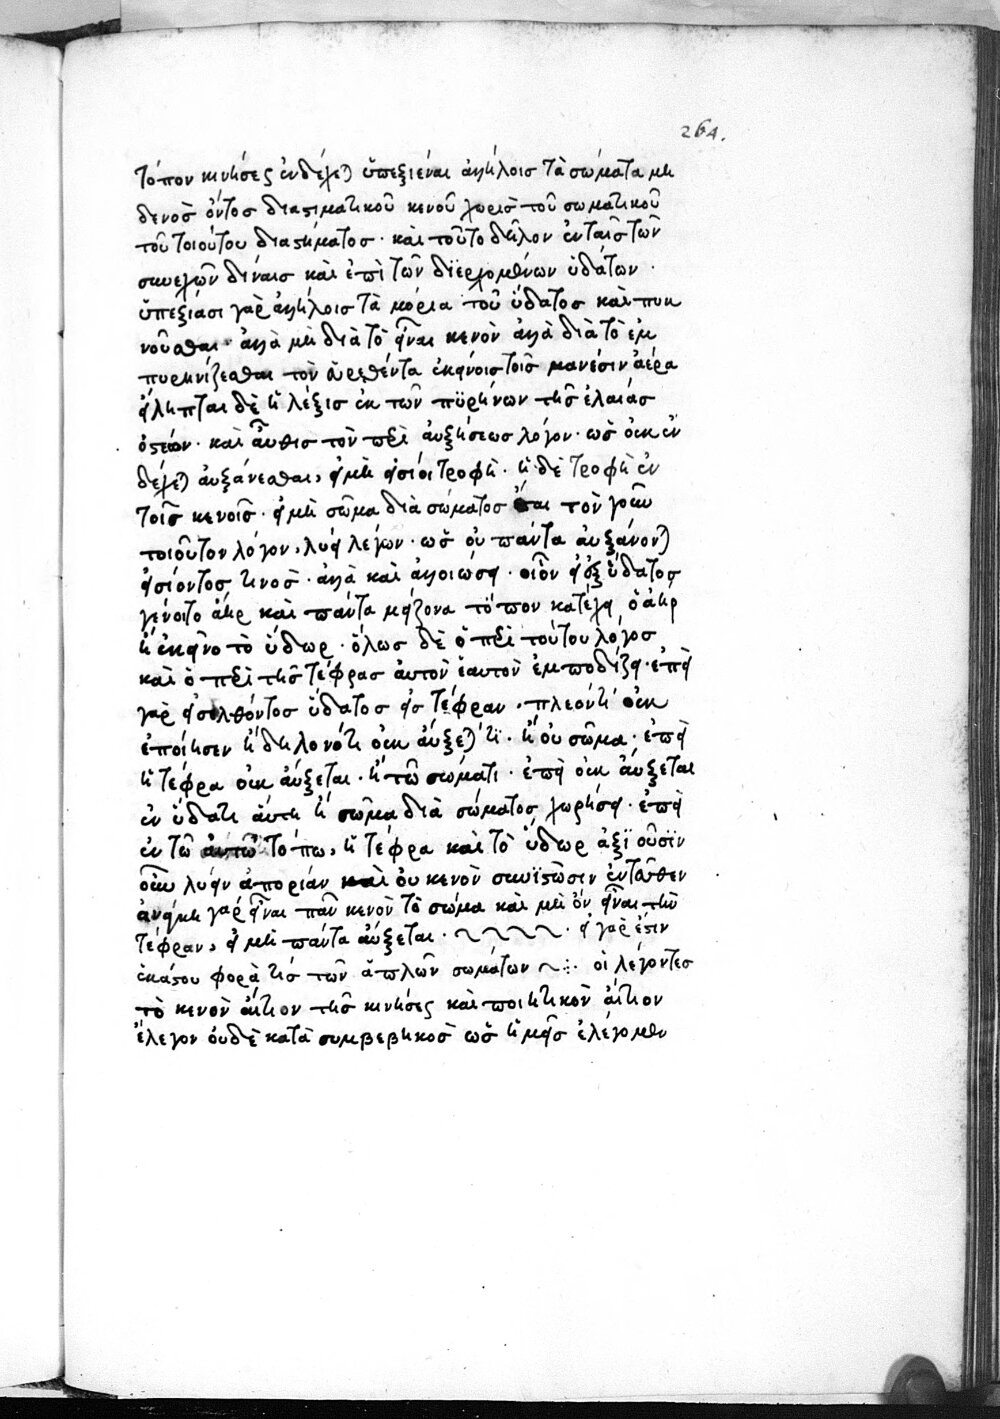 264.
τόπον κινήσεως ἐνδέχεται ὑπεξιέναι ἀλλήλοις τὰ σώματα μη
δενὸς ὄντος διαστιματικοῦ κενοῦ χωρὶς τοῦ σωματικοῦ
τοῦ τοιούτου διαστήματος · καὶ τοῦτο δῆλον ἐν ταῖς τῶν
συνεχῶν δίναις καὶ ἐπὶ τῶν διερχομένων ὑδάτων ·
ὑπεξιάσι γὰρ ἀλλήλοις τὰ μόρια τοῦ ὕδατος καὶ πυκ
νοῦσθαι · ἀλλὰ μὴ διὰ τὸ εἶναι κενὸν ἀλλὰ διὰ τὸ ἐμ
πυρηνίζεσθαι τὸν εὑρεθέντα ἐκείνοις τοῖς μανέσιν ἀέρα
εἴληπται δὲ ἡ λέξις ἐκ τῶν πυρήνων τῆς ἐλαίας
ὀστέων · καὶ αὖθις τὸν περὶ αὐξήσεως λόγον · ὡς οὐκ ἐν
δέχεται αὐξάνεσθαι, εἰ μὴ εἰσίοι τροφὴ · ἡ δὲ τροφὴ ἐν
τοῖς κενοῖς · εἰ μὴ σῶμα διὰ σώματος ἔσται τὸν γοῦν
τοιοῦτον λόγον, λύει λέγων · ὡς οὐ πάντα αὐξάνονται
εἰσιόντος τινὸς · ἀλλὰ καὶ ἀλλοιώσει · οἷον εἰ ἐξ ὕδατος
γένοιτο ἀὴρ καὶ πάντα μείζονα τόπον κατέχει ὁ ἀὴρ
ἢ ἐκεῖνο τὸ ὕδωρ · ὅλως δὲ ὁ περὶ τούτου λόγος
καὶ ὁ περὶ τῆς τέφρας αὐτὸν ἑαυτὸν ἐμποδίζει · ἐπεὶ
γὰρ εἰσελθόντος ὕδατος εἰς τέφραν · πλέον τι οὐκ
ἐποίησεν ἢ δηλονότι οὐκ αὔξεταί τι · ἢ οὐ σῶμα · ἐπεὶ
ἡ τέφρα οὐκ αὔξεται · ἢ τῶ σώματι · ἐπεὶ οὐκ αὔξεται
ἐν ὕδατι αὕτη ἢ σῶμα διὰ σώματος χωρήσει · ἐπεὶ
ἐν τῶ αὐτῶ τόπω, ἡ τέφρα καὶ τὸ ὕδωρ ἀξιοῦσιν
οὖν λύειν ἀπορίαν καὶ οὐ κενὸν συνιστῶσιν ἐνταῦθεν
ἀνάγκη γὰρ εἶναι πᾶν κενὸν τὸ σῶμα καὶ μὴ ὂν εἶναι τὴν
τέφραν, εἰ μὴ πάντα αὔξεται · εἰ γὰρ ἔστιν
ἑκάστου φορά τις τῶν ἁπλῶν σωμάτων οἱ λέγοντες
τὸ κενὸν αἴτιον τῆς κινήσεως καὶ ποιητικὸν αἴτιον
ἔλεγον οὐδὲ κατὰ συμβεβηκὸς ὡς ἡμεῖς ἐλέγομεν